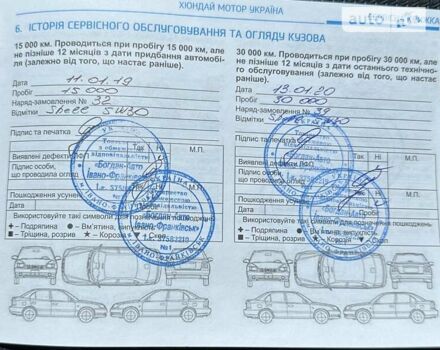 ХЮНДАЙ МОТОР УКРАЇНА
6. ІСТОРІЯ СЕРВІСНОГО ОБСЛУГОВУВАННЯ ТА ОГЛЯДУ КУЗОВА
15 000 км. Проводиться при пробігу 15 000 км, але
не пізніше 12 місяців з дати придбання автомобі-
ля (залежно від того, що настає раніше).
Дата 11.01.19
Пробіг 15000
Наряд-замовлення № 32
Відмітки Shell 5W30
Підпис та печатка
Виявлені дефекти ЛФП Так Ні М.П.
Підпис особи,
що проводила огляд
Пошкодження усунені Так Ні М.П.
Дата Пробіг
30 000 км. Проводиться при пробігу 30 000 км, але
не пізніше 12 місяців з дати останнього технічно-
го обслуговування (залежно від того, що настає
раніше).
Дата 13.01.20
Пробіг 30 000
Наряд-замовлення № 39
Відмітки Shell 5W30
Підпис та печатка
Виявлені дефекти Так Ні М.П.
Підпис особи,
що проводила огляд
Пошкодження усунені Так Ні М.П.
Дата Пробіг
Використовуйте такі символи для позначення пошкоджень:
+ - Подряпина ● - Вм'ятина, випуклість
■ - Тріщина, розрив ★ - Корозія ▼ - Скол
«Богдан-Авто
Івано-Франківськ»
№1